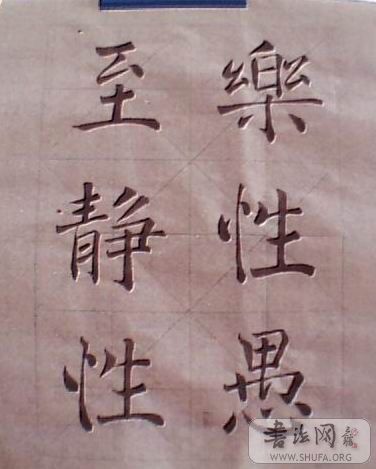 樂性愚
至静性
書法网
WWW.SHUFA.ORG